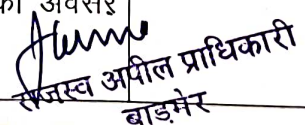 का अवसर
राजस्व अपील प्राधिकारी
बाड़मेर